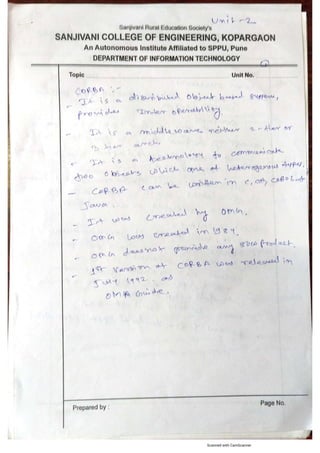 Unit-2
Sanjivani Rural Education Society's
SANJIVANI COLLEGE OF ENGINEERING, KOPARGAON
An Autonomous Institute Affiliated to SPPU, Pune
DEPARTMENT OF INFORMATION TECHNOLOGY
Topic Unit No.
CORBA :-
- It is a distributed object based system,
provides Inter operability.
- It is a middleware neither 2-tier or
3 tier arch.
- It is a technology to communicate
two objects which are of heterogenous types,
- CORBA can be written in C, COBOL &
Java.
- It was created by OMG.
- OMG was created in 1989.
- OMG doesnot provide any product.
- 1st version of CORBA was released in
July 1992. as
OMA Guide.
Prepared by : Page No.
Scanned with CamScanner